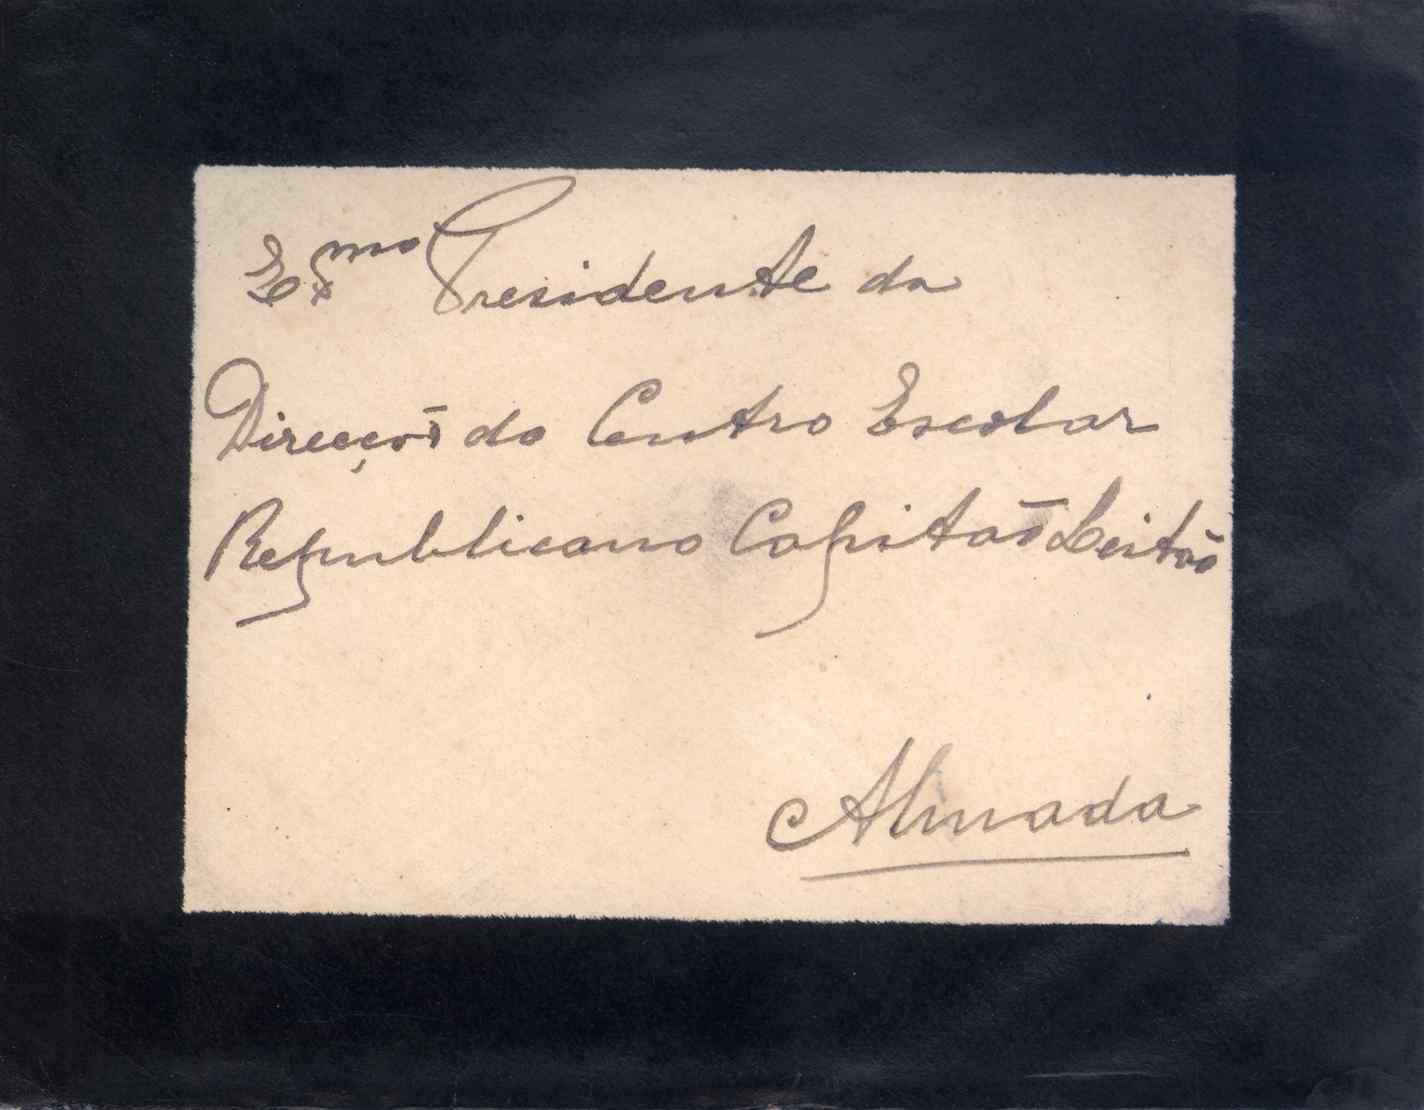 Exmo Presidente da
Direcção do Centro Escolar
Republicano Capitão Leitão
Almada